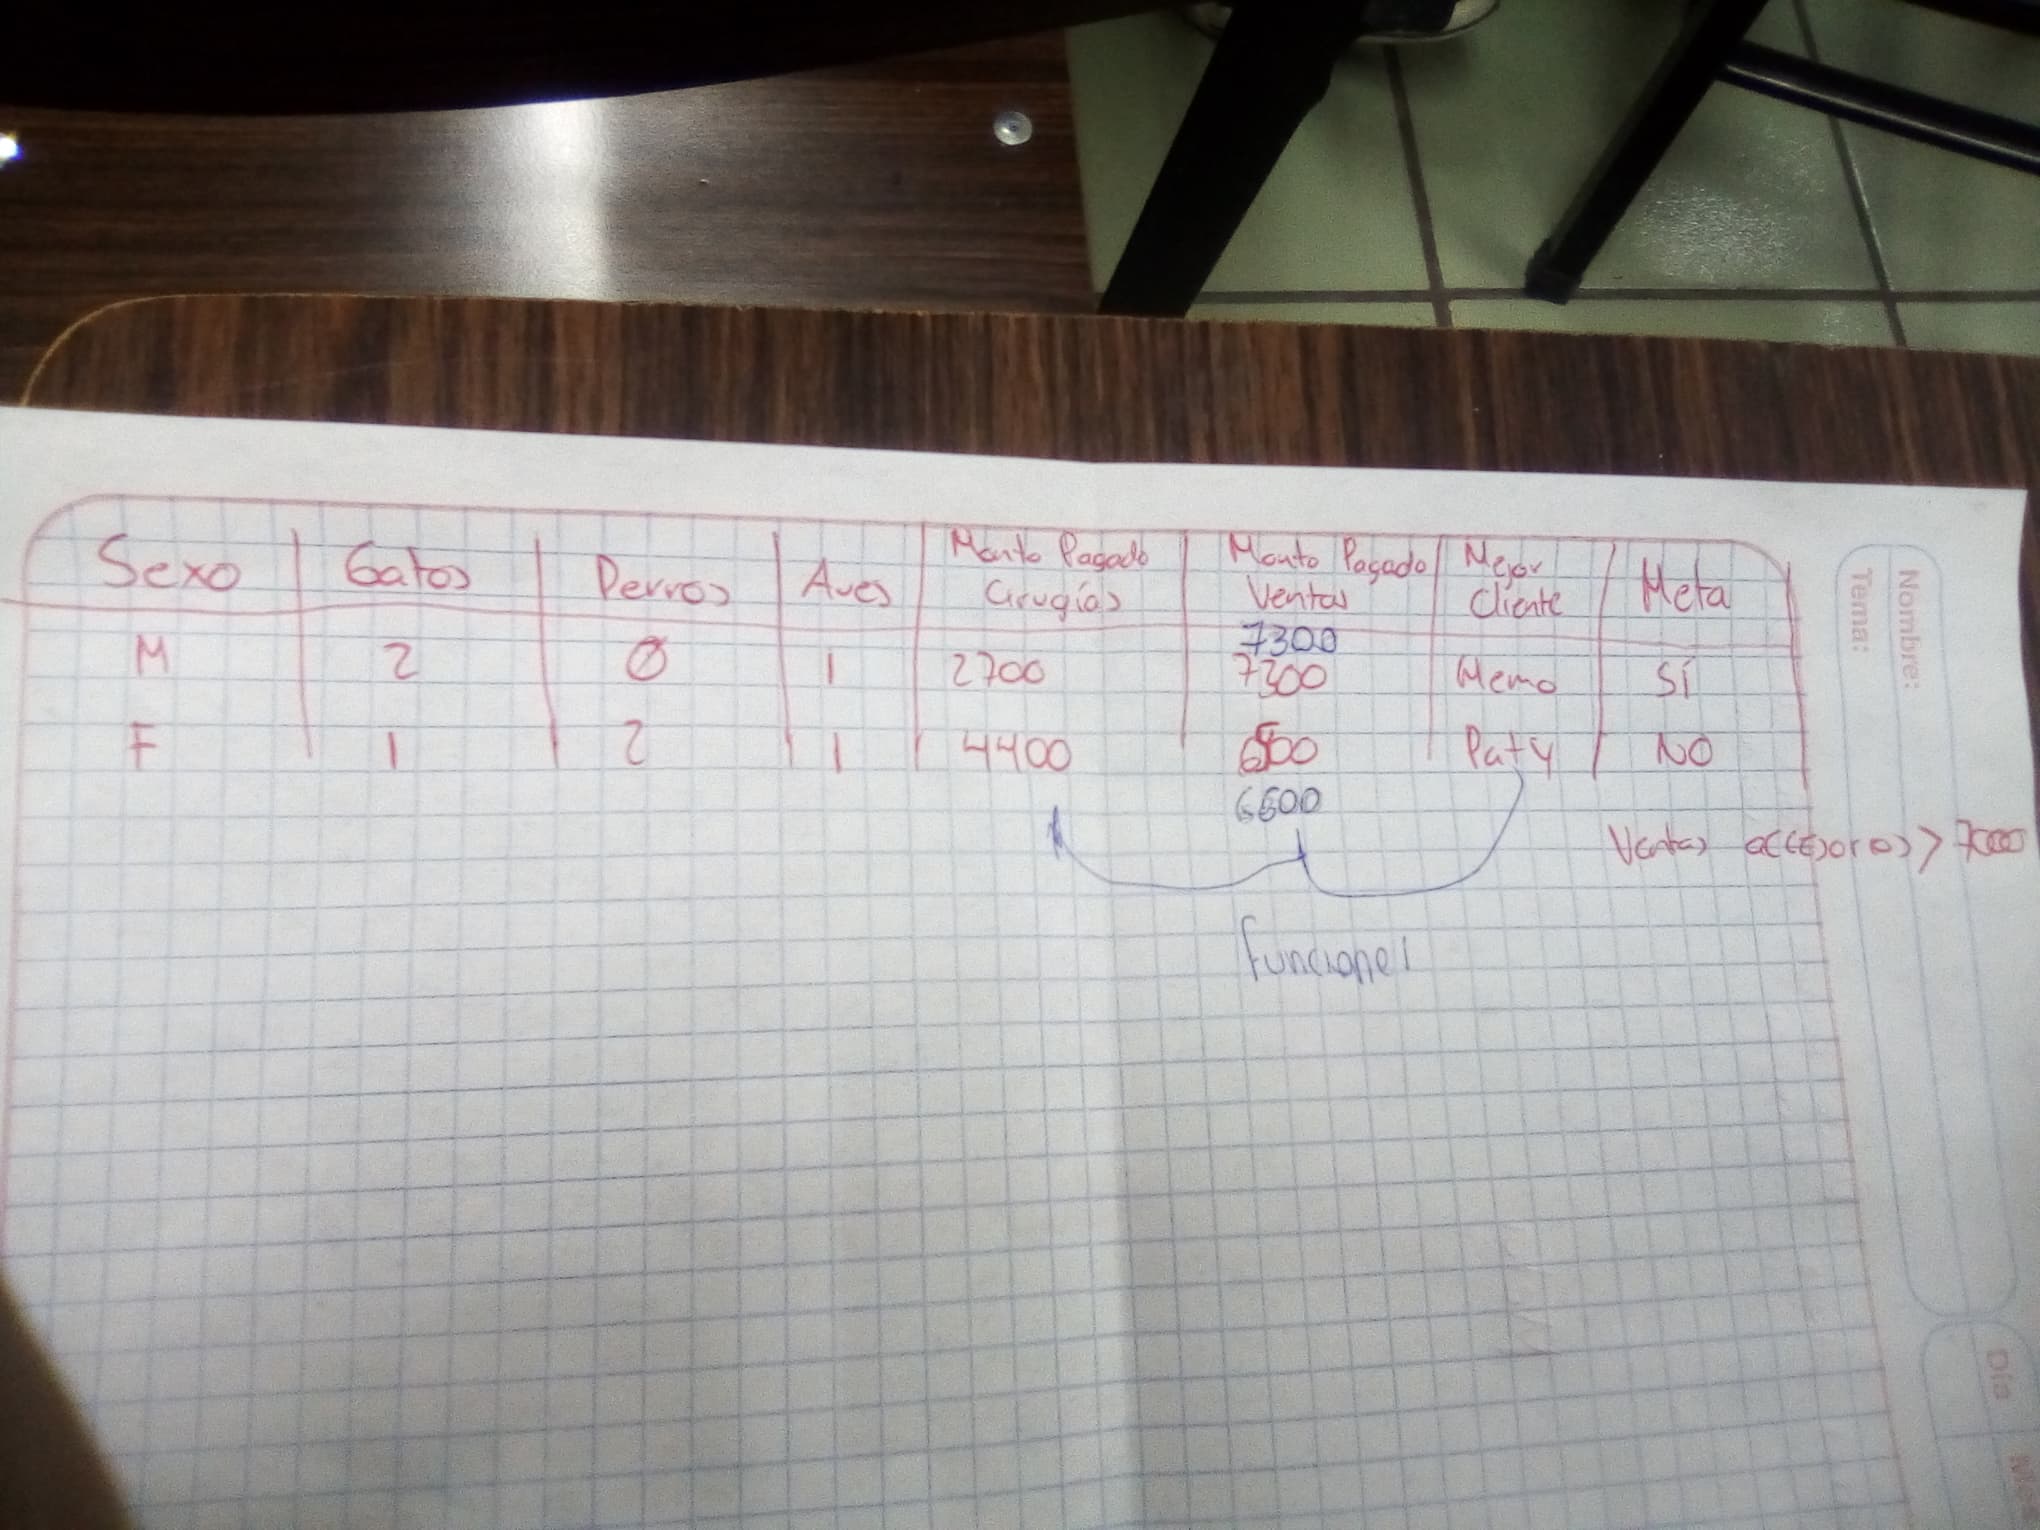 Sexo Gatos Perros Aves Monto Pagado Cirugías Monto Pagado Ventas Mejor Cliente Meta
7300
M 2 0 1 2700 7300 Memo SÍ
F 1 2 1 4400 Paty NO
Ventas accesorios > 7000
funciones
Nombre:
Tema:
Día